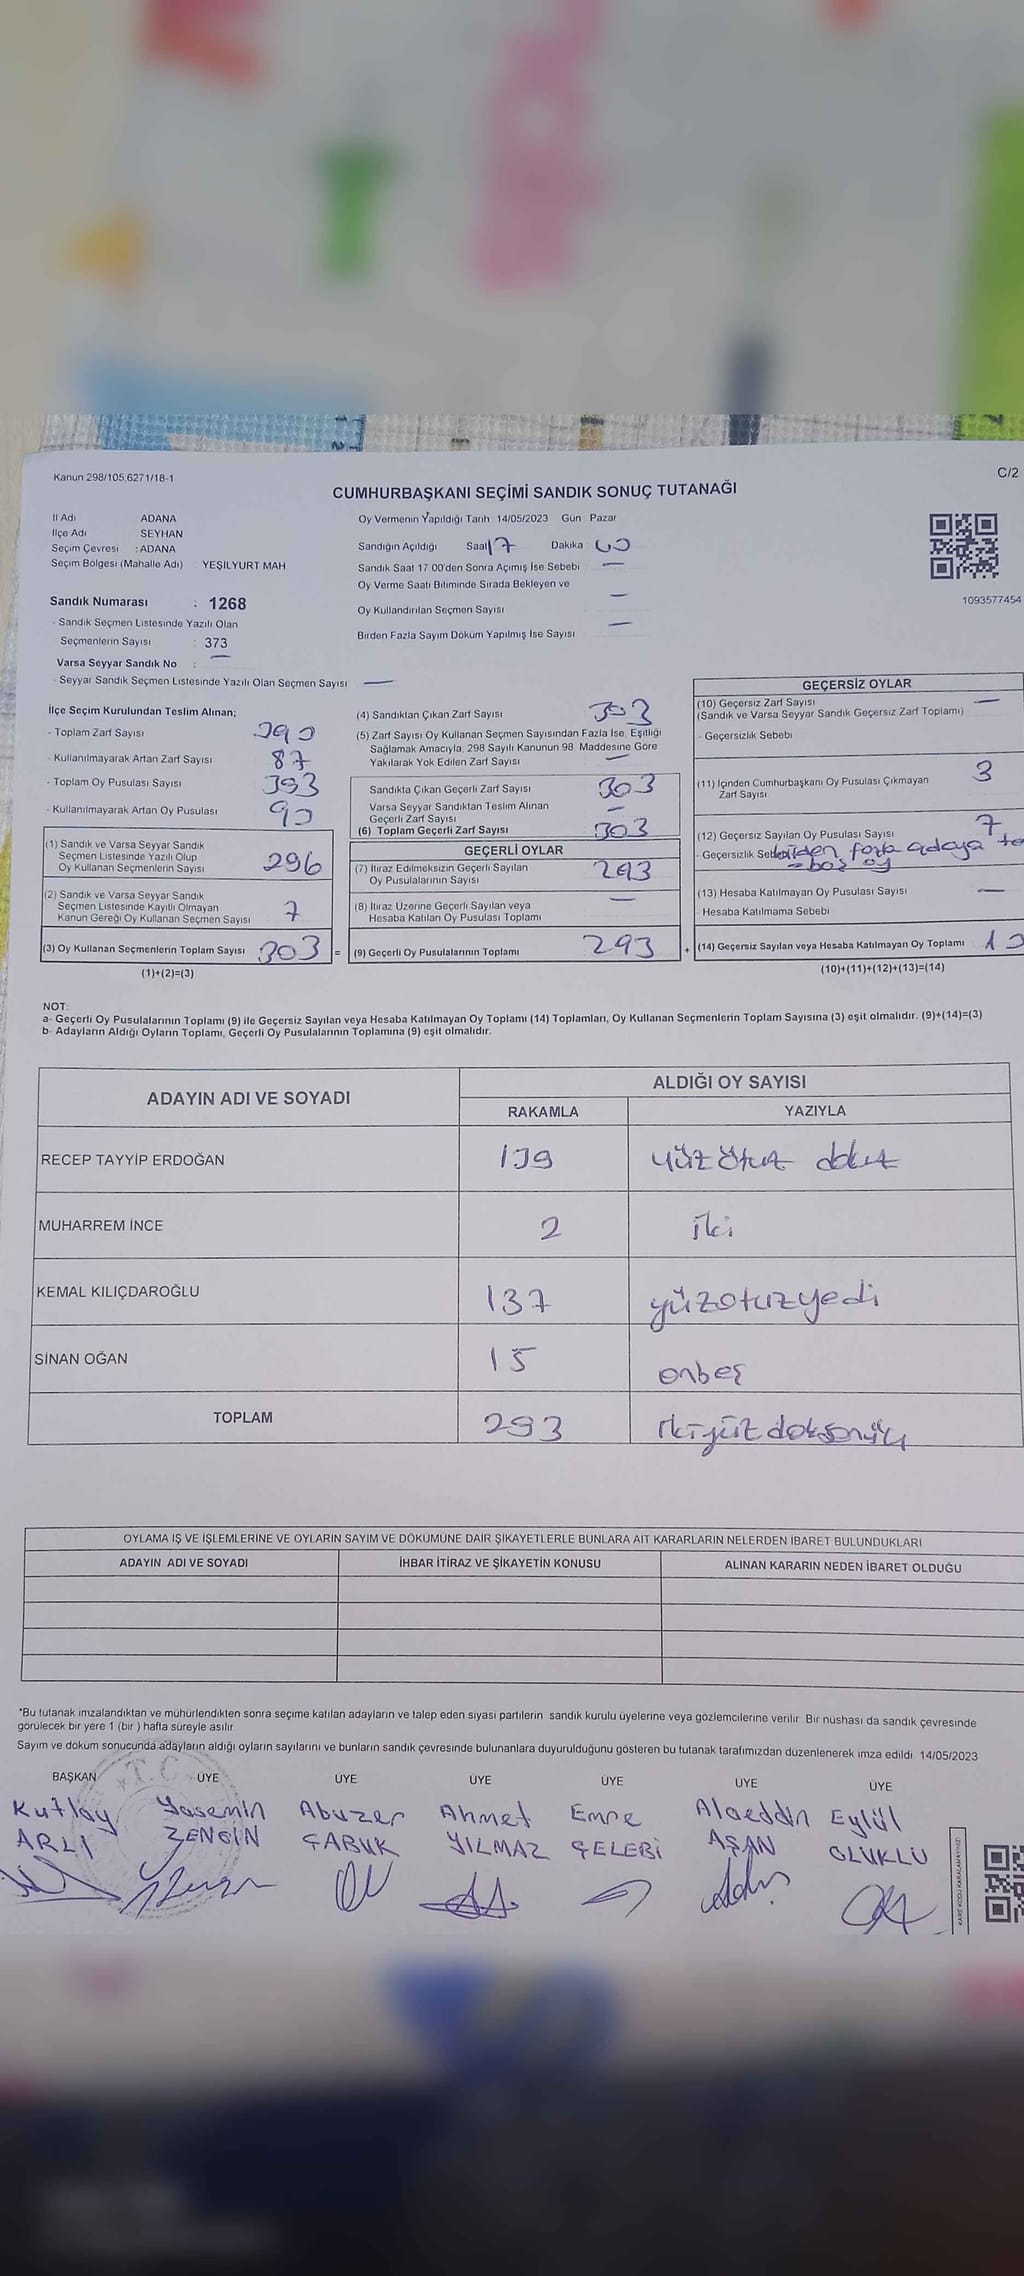 Kanun 298/105,6271/18-1
C/2
CUMHURBAŞKANI SEÇİMİ SANDIK SONUÇ TUTANAĞI
İl Adı ADANA
İlçe Adı SEYHAN
Seçim Çevresi : ADANA
Seçim Bölgesi (Mahalle Adı) YEŞİLYURT MAH
Sandık Numarası : 1268
- Sandık Seçmen Listesinde Yazılı Olan
Seçmenlerin Sayısı : 373
Varsa Seyyar Sandık No : —
- Seyyar Sandık Seçmen Listesinde Yazılı Olan Seçmen Sayısı —
Oy Vermenin Yapıldığı Tarih 14/05/2023 Gün Pazar
Sandığın Açıldığı Saat 17 Dakika 00
Sandık Saat 17 00'den Sonra Açımış İse Sebebi —
Oy Verme Saati Bitiminde Sırada Bekleyen ve
Oy Kullandırılan Seçmen Sayısı —
Birden Fazla Sayım Döküm Yapılmış İse Sayısı —
1093577454
İlçe Seçim Kurulundan Teslim Alınan;
- Toplam Zarf Sayısı 390
- Kullanılmayarak Artan Zarf Sayısı 87
- Toplam Oy Pusulası Sayısı 393
- Kullanılmayarak Artan Oy Pusulası 90
(1) Sandık ve Varsa Seyyar Sandık
Seçmen Listesinde Yazılı Olup
Oy Kullanan Seçmenlerin Sayısı 296
(2) Sandık ve Varsa Seyyar Sandık
Seçmen Listesinde Kayıtlı Olmayan
Kanun Gereği Oy Kullanan Seçmen Sayısı 7
(3) Oy Kullanan Seçmenlerin Toplam Sayısı 303 =
(1)+(2)=(3)
(4) Sandıktan Çıkan Zarf Sayısı 303
(5) Zarf Sayısı Oy Kullanan Seçmen Sayısından Fazla İse, Eşitliği
Sağlamak Amacıyla, 298 Sayılı Kanunun 98 Maddesine Göre
Yakılarak Yok Edilen Zarf Sayısı —
Sandıkta Çıkan Geçerli Zarf Sayısı 303
Varsa Seyyar Sandıktan Teslim Alınan
Geçerli Zarf Sayısı —
(6) Toplam Geçerli Zarf Sayısı 303
GEÇERLİ OYLAR
(7) İtiraz Edilmeksizin Geçerli Sayılan
Oy Pusulalarının Sayısı 293
(8) İtiraz Üzerine Geçerli Sayılan veya
Hesaba Katılan Oy Pusulası Toplamı —
(9) Geçerli Oy Pusulalarının Toplamı 293 +
GEÇERSİZ OYLAR
(10) Geçersiz Zarf Sayısı —
(Sandık ve Varsa Seyyar Sandık Geçersiz Zarf Toplamı)
- Geçersizlik Sebebi
(11) İçinden Cumhurbaşkanı Oy Pusulası Çıkmayan
Zarf Sayısı 3
(12) Geçersiz Sayılan Oy Pusulası Sayısı 7
- Geçersizlik birden fazla adaya
boş oy
(13) Hesaba Katılmayan Oy Pusulası Sayısı —
- Hesaba Katılmama Sebebi
(14) Geçersiz Sayılan veya Hesaba Katılmayan Oy Toplamı 10
(10)+(11)+(12)+(13)=(14)
NOT:
a- Geçerli Oy Pusulalarının Toplamı (9) ile Geçersiz Sayılan veya Hesaba Katılmayan Oy Toplamı (14) Toplamları, Oy Kullanan Seçmenlerin Toplam Sayısına (3) eşit olmalıdır. (9)+(14)=(3)
b- Adayların Aldığı Oyların Toplamı, Geçerli Oy Pusulalarının Toplamına (9) eşit olmalıdır.
ADAYIN ADI VE SOYADI
ALDIĞI OY SAYISI
RAKAMLA YAZIYLA
RECEP TAYYİP ERDOĞAN 139 yüz otuz dokuz
MUHARREM İNCE 2 iki
KEMAL KILIÇDAROĞLU 137 yüzotuzyedi
SİNAN OĞAN 15 onbeş
TOPLAM 293 ikiyüzdoksanüç
OYLAMA İŞ VE İŞLEMLERİNE VE OYLARIN SAYIM VE DÖKÜMÜNE DAİR ŞİKAYETLERLE BUNLARA AİT KARARLARIN NELERDEN İBARET BULUNDUKLARI
ADAYIN ADI VE SOYADI İHBAR İTİRAZ VE ŞİKAYETİN KONUSU ALINAN KARARIN NEDEN İBARET OLDUĞU
*Bu tutanak imzalandıktan ve mühürlendikten sonra seçime katılan adayların ve talep eden siyasi partilerin sandık kurulu üyelerine veya gözlemcilerine verilir Bir nüshası da sandık çevresinde
görülecek bir yere 1 (bir ) hafta süreyle asılır
Sayım ve döküm sonucunda adayların aldığı oyların sayılarını ve bunların sandık çevresinde bulunanlara duyurulduğunu gösteren bu tutanak tarafımızdan düzenlenerek imza edildi 14/05/2023
BAŞKAN ÜYE ÜYE ÜYE ÜYE ÜYE ÜYE
T.C
Kutlay Yasemin Abuzer Ahmet Emre Alaeddin Eylül
ARLI ZENGİN ÇABUK YILMAZ ÇELEBİ AŞAN OLUKLU
KARE KODU KARALAMAYINIZ